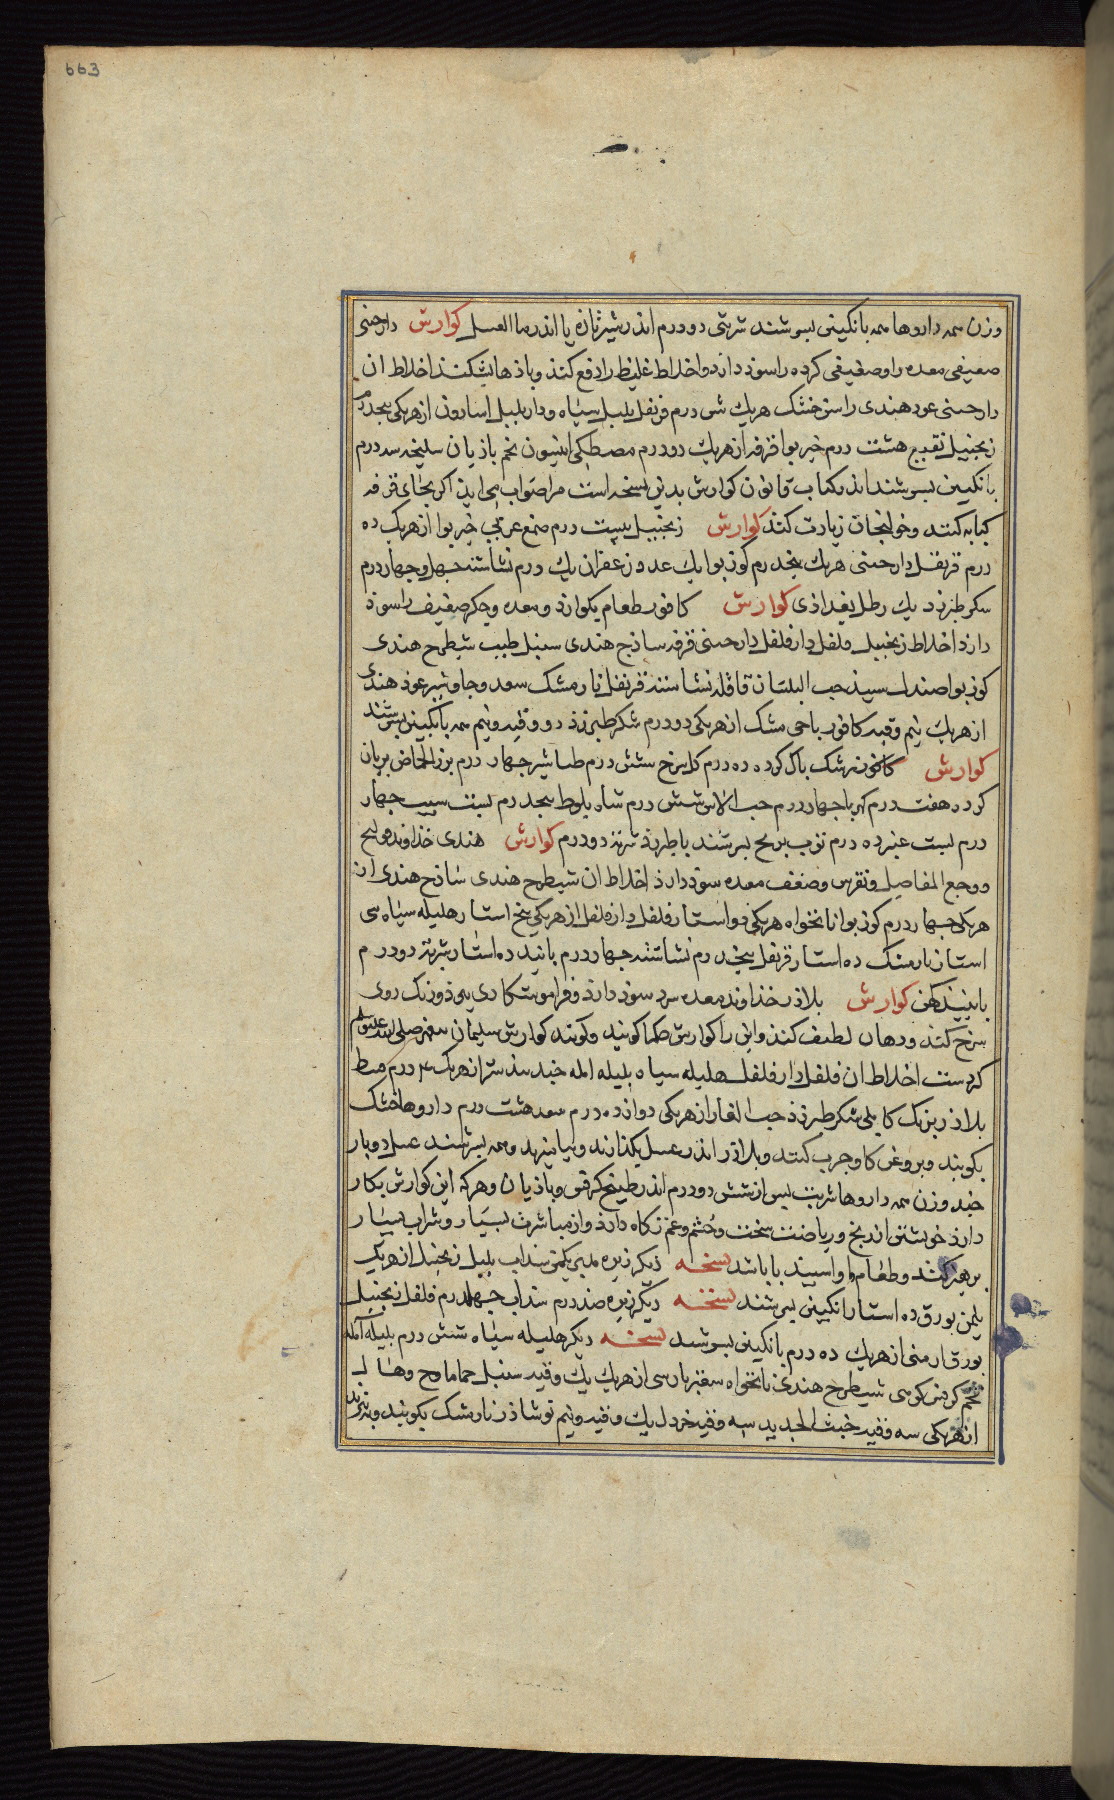 663
وزن همه داروها همه بانکبین بسرشند شربتی دو درم اندر شیر تازه یا اندر ما العسل کوارش دارچینی
ضعیفی معده را وضعیفی کرده را سوذ دارد واخلاط غلیظ را دفع کند وباذها بشکند اخلاط ان
دارچینی عود هندی راسن خشک هریک شش درم قرنفل پلپل سپاه ودار پلپل اسارون از هریکی پنجدرم
زنجبیل نقیع هشت درم خیربوا قرفه از هریک دو درم مصطکی انیسون تخم باذیان سلیخه سه درم
بانکبین بسرشند اندر کتاب قانون کوارش بدین نسخه است مرا صواب می اید اکر بجای قرفه
کبابه کنند وخولنجان زیادت کنند کوارش زنجبیل بیست درم صمغ عربی خیربوا از هریک ده
درم قرنفل دارچینی هریک پنجدرم کوزبوا یک عدد زعفران یک درم نشاسته چهل وچهار درم
سکر طبرزد یک رطل بغداذی کوارش کافور طعام بکوارد ومعده وجکر ضعیف را سوذ
دارد اخلاط زنجبیل فلفل دارفلفل دارچینی قرفه ساذج هندی سنبل طیب شیطرج هندی
کوزبوا صندل سپیذ حب البلسان قاقله نشاسته قرنفل نارمشک سعد وجاوشیر عوذ هندی
از هریک نیم وقیه کافور رباحی مشک از هریکی دو درم شکر طبرزذ دو وقیه ونیم همه بانکبین بسرشند
کوارش کافور زرشک پاک کرده ده درم کل سرخ شش درم طباشیر چهار درم بزر الحماض بریان
کرده هفت درم کهربا چهار درم حب الاس شش درم شاه بلوط پنجدرم پست سیب چهار
درم پست غبیرا ده درم بسرشند با طبرزذ شربة دو درم کوارش هندی خذاوند قولنج
ووجع المفاصل ونقرس وضعف معده سوذ دارذ اخلاط ان شیطرج هندی ساذج هندی از
هریکی چهار درم کوزبوا نانخواه هریکی دو استار فلفل دارفلفل از هریکی پنج استار هلیله سیاه سی
استار نارمشک ده استار قرنفل پنجدرم نشاسته چهار درم بانید ده استار شربة دو درم
بابنید کهن کوارش بلاذر خذاوند معده سرد سوذ دارذ وفراموشتکاری ببرد ورنک روی
سرخ کند ودهان لطیف کند واین را کوارش حکما کویند وکویند کوارش سلیمان پیغمبر صلی الله علیه وسلم
کردست اخلاط ان فلفل دارفلفل هلیله سیاه بلیله امله جند بیدستر از هریک ۴ درم قسط
بلاذر برنک کابلی شکر طبرزذ حب الغار از هریکی دوازده درم سعد هشت درم داروها خشک
بکوبند وبروغن کاو چرب کنند وبلاذر اندر عسل بکذازند وبیامیزند وهمه بسرشند عسل دوبار
چند وزن همه داروها شربت پس از شش دو درم اندر طبیخ کرفس وباذیان وهرکه این کوارش بکار
دارذ خویشتن از رنج وریاضت سخت وخشم وغم نکاه دارذ واز مباشرت بسیار وشراب بسیار
پرهیز کند وطعام او اسپید با باشد نسخه دیکر زیره یکمن سداب پلپل زنجبیل از هریک
یکمن بورق ده استار انکبین بسرشند نسخه دیکر زیره صذ درم سذاب چهلدرم فلفل زنجبیل
بورق ارمنی از هریک ده درم بانکبین بسرشند نسخه دیکر هلیله سیاه شش درم بلیله آمله
تخم کرفس کوهی شیطرج هندی نانخواه سعتر پارسی از هریک یک وقیه سنبل حماما وج وهال
از هریکی سه وقیه خبث الحدید سه وقیه خردل یک وقیه ونیم نوشاذر نارمشک بکوبند